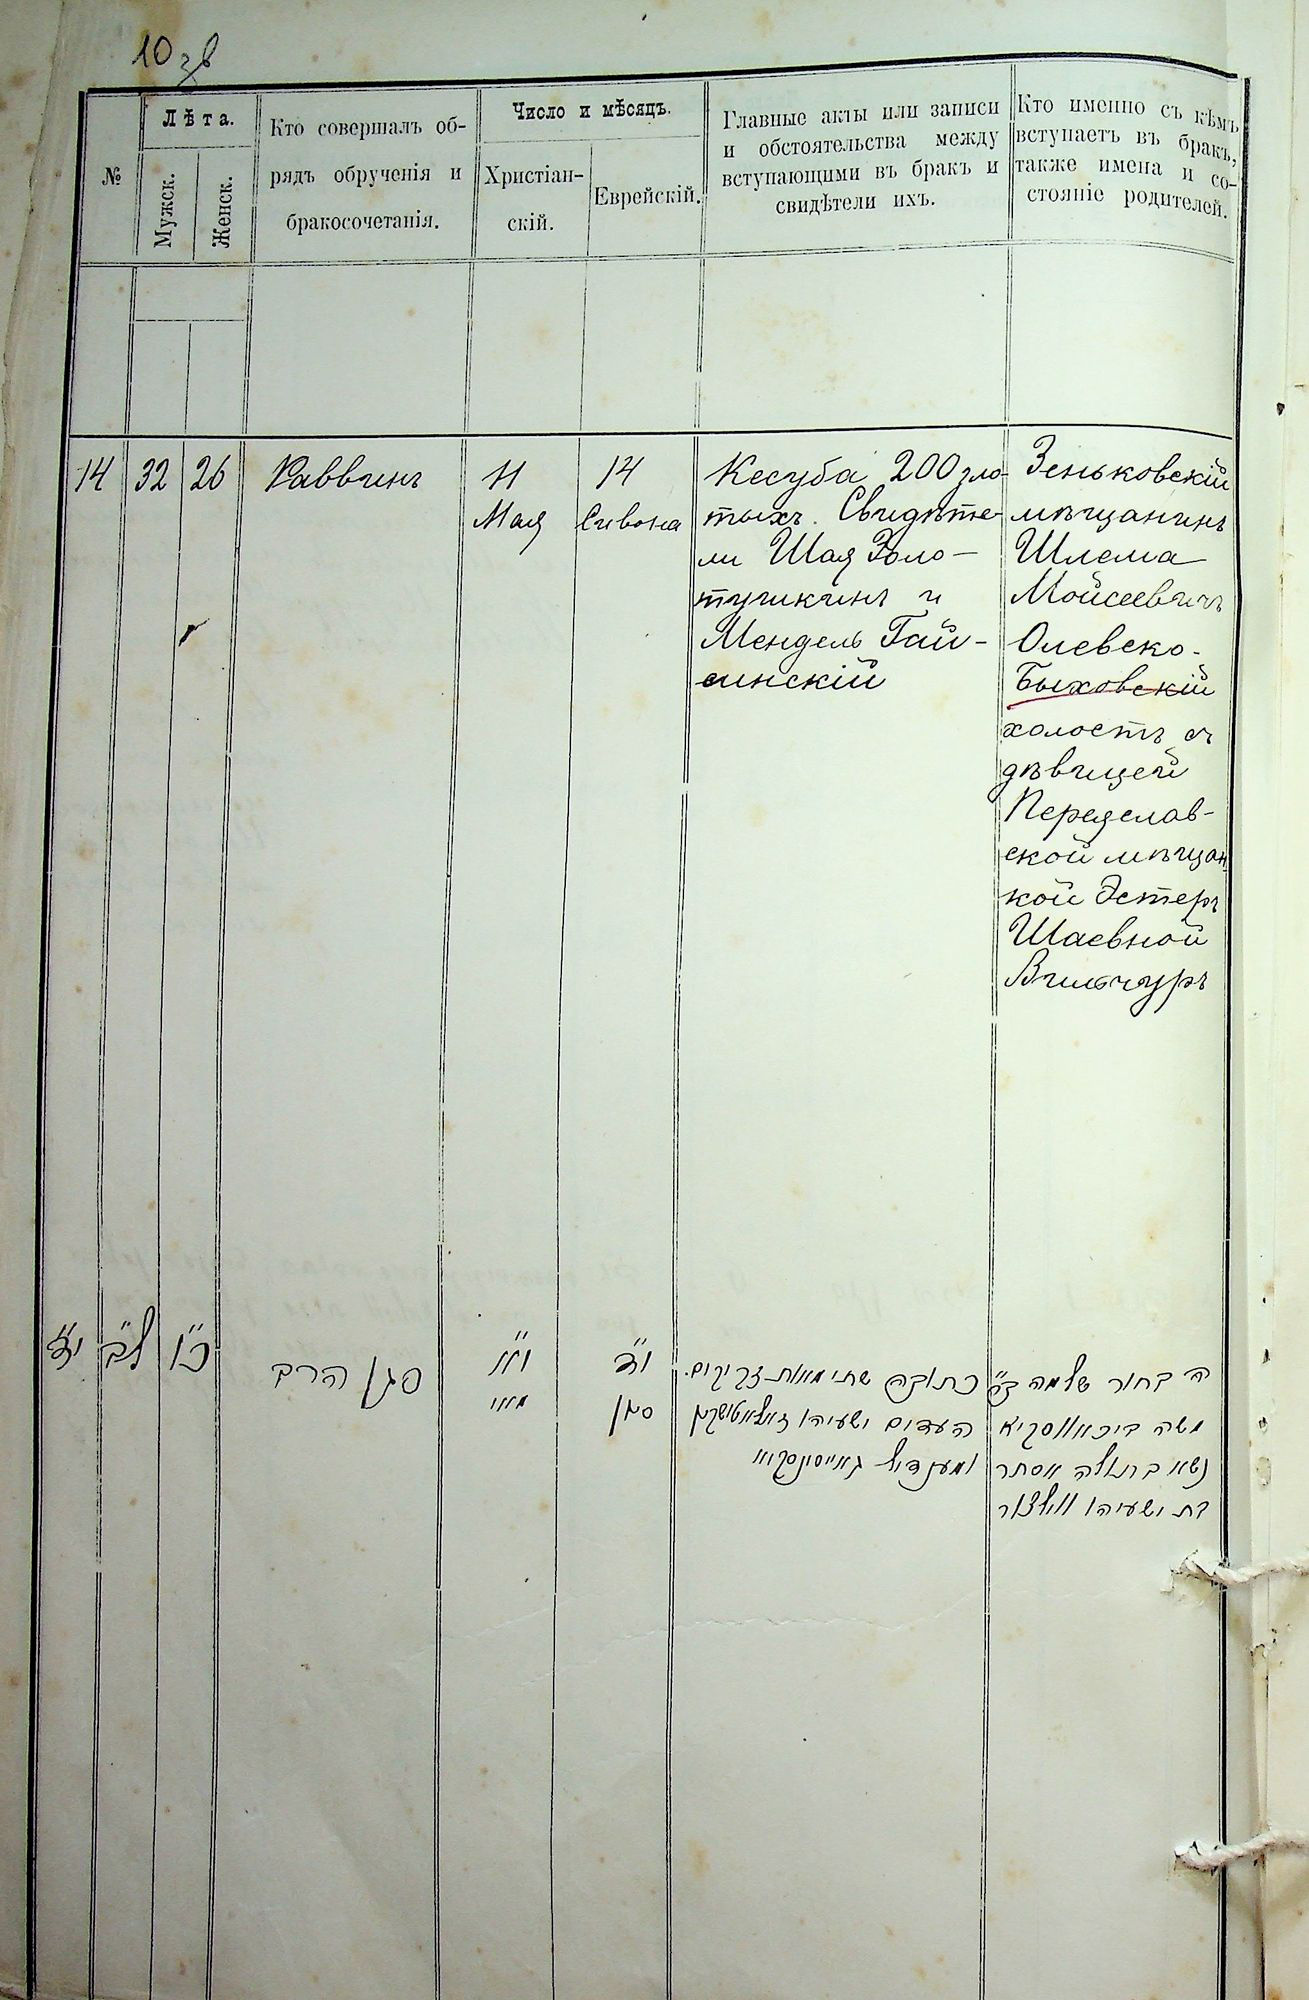 10 зв
№
Лѣта.
Мужск.
Женск.
Кто совершалъ об-
рядъ обрученія и
бракосочетанія.
Число и мѣсяцъ.
Христіан-
скій.
Еврейскій.
Главные акты или записи
и обстоятельства между
вступающими въ бракъ и
свидѣтели ихъ.
Кто именно съ кѣмъ
вступаетъ въ бракъ,
также имена и со-
стояніе родителей.
14
32
26
Раввинъ
11
Мая
14
Сивона
Кесуба 200 зло-
тыхъ. Свидѣте-
ли Шая Золо-
тушкинъ и
Мендель Гай-
синскій
Зеньковскій
мѣщанинъ
Шлема
Мойсеевичъ
Олевско-
Быховскій
холостъ съ
дѣвицей
Переяслав-
ской мѣщан-
кой Эстеръ
Шаевной
Вильчуръ
י״ד
ל״ב
כ״ו
סגן הרב
מאי
סיון
כתובה שתי מאות זקוקים.
העדים ישעיהו זאלאטושקין
ומענדיל גאייסינסקיא
ה׳ בחור שלמה ב״ר
משה ביכאווסקיא
נשא בתולה אסתר
בת ישעיהו ווילצור